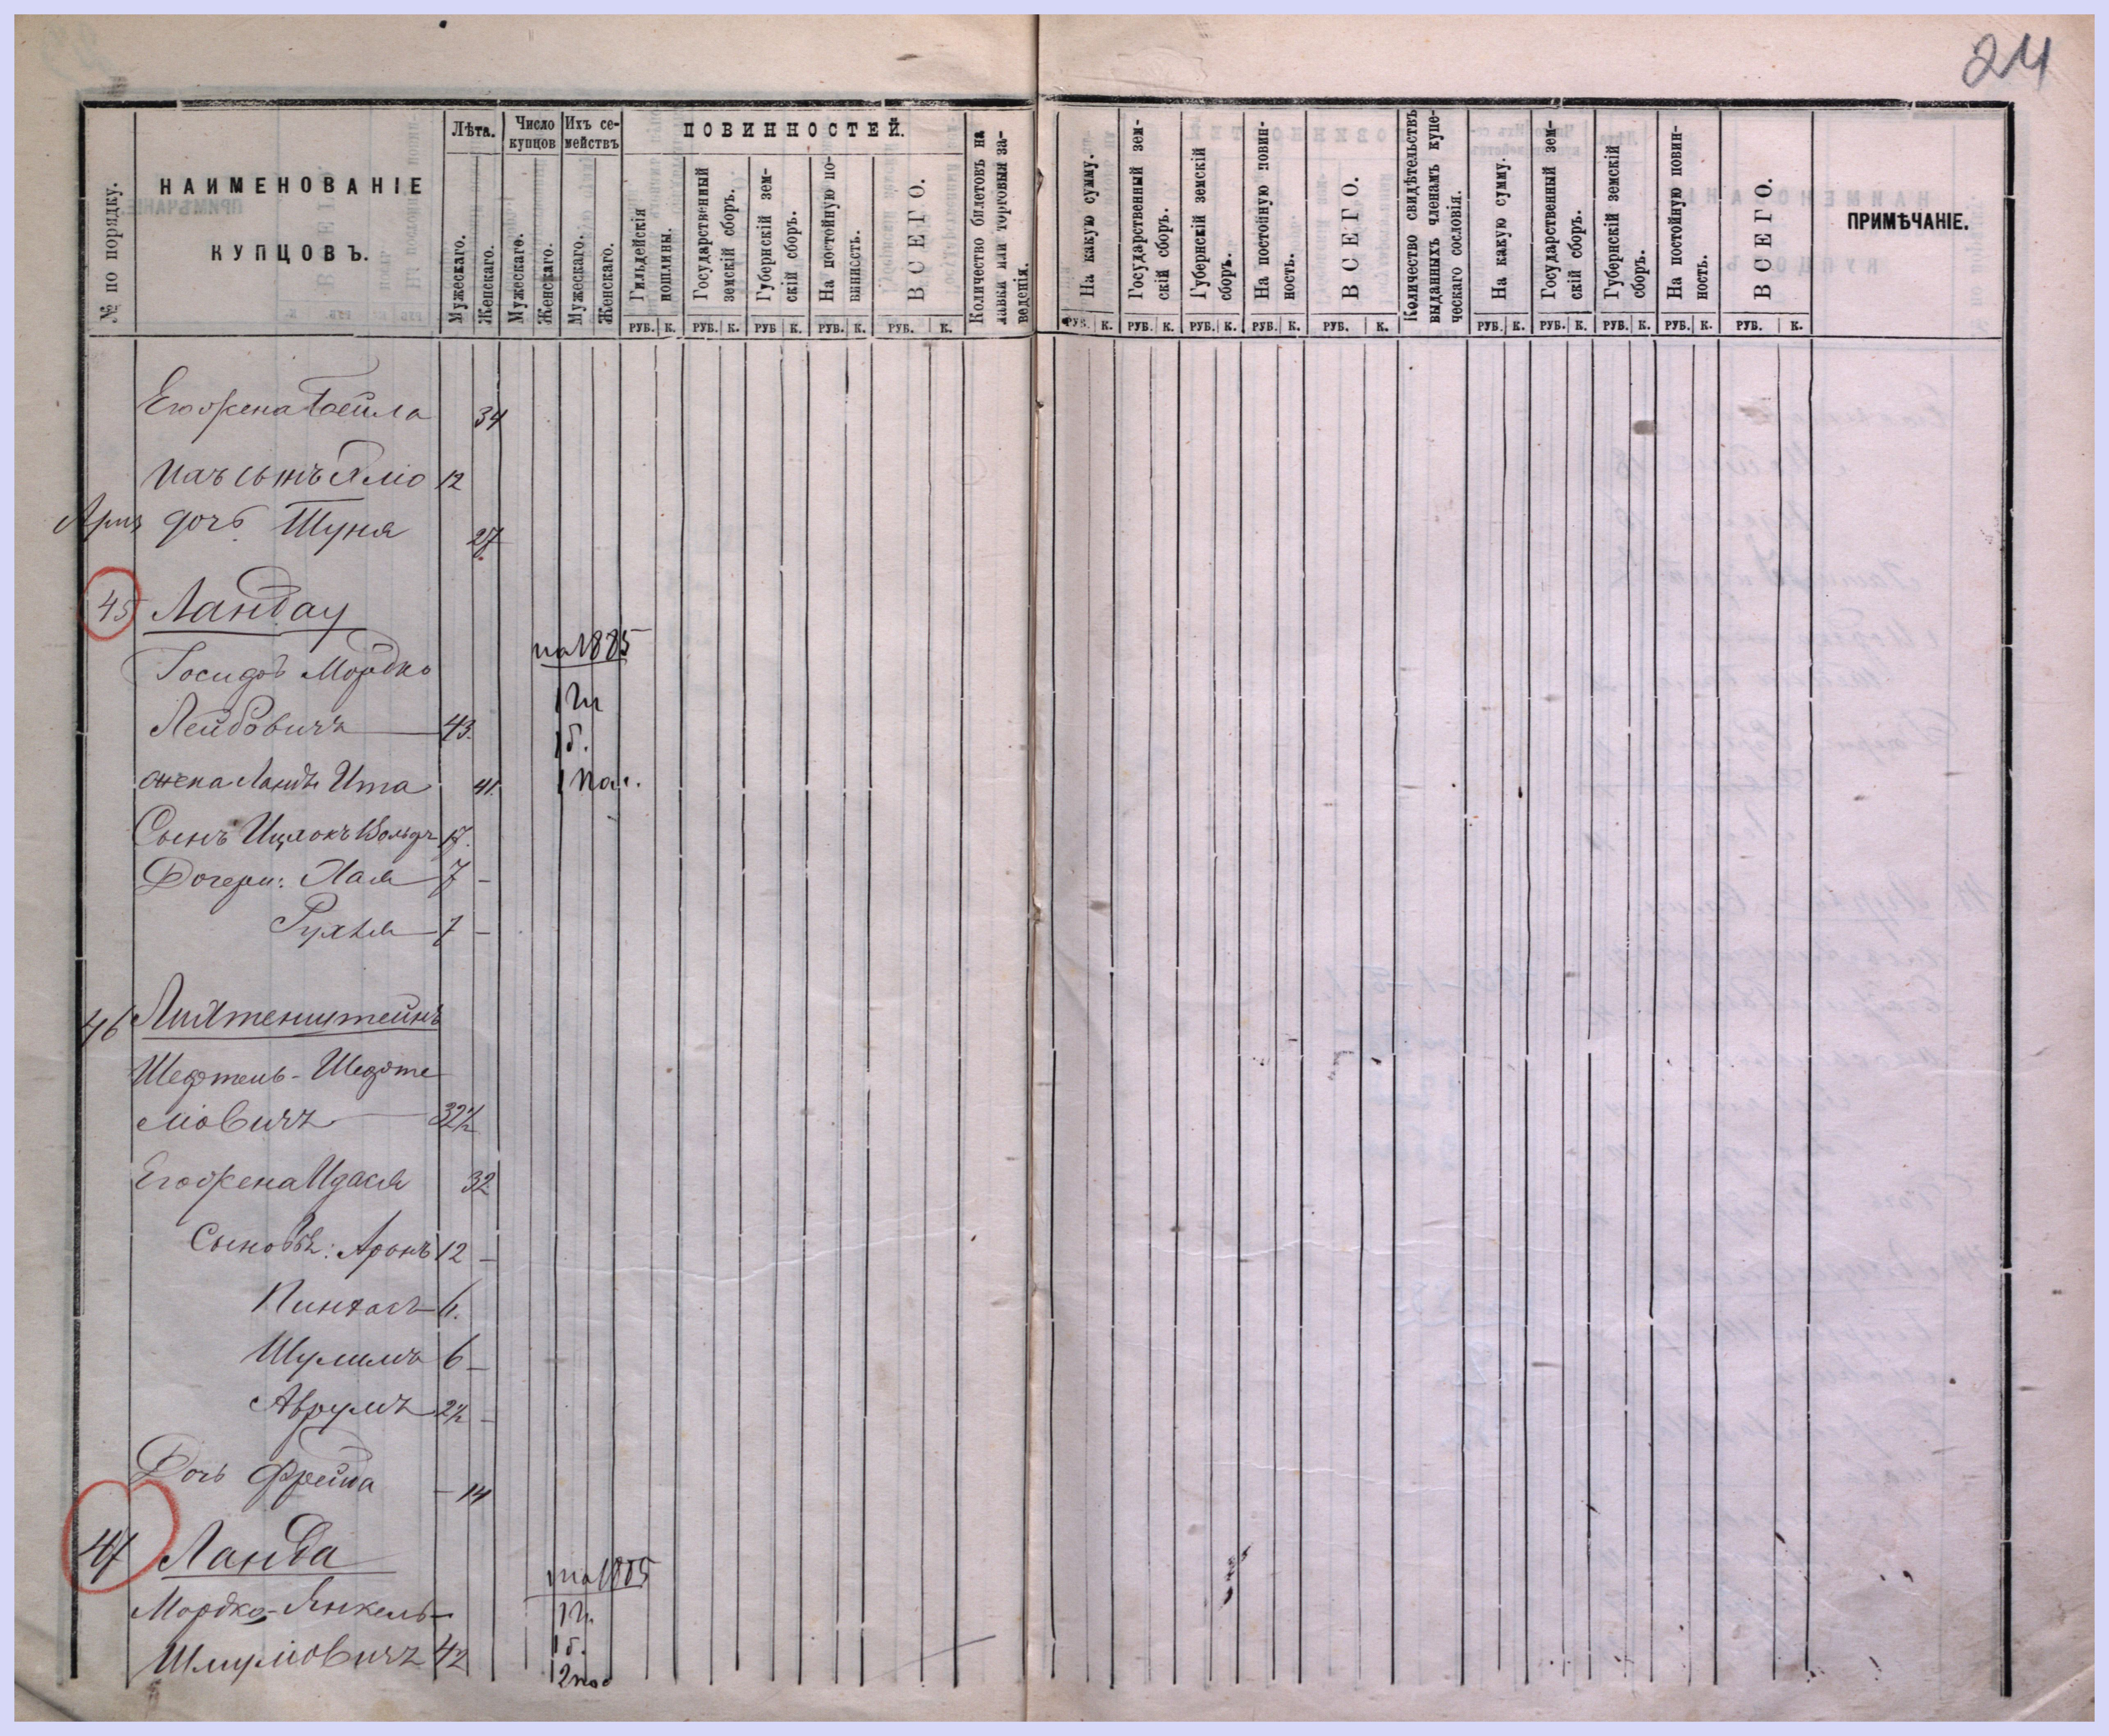 24
№ по порядку.
НАИМЕНОВАНІЕ КУПЦОВЪ.
Лѣта.
Мужескаго.
Женскаго.
Число купцов
Мужескаго.
Женскаго.
Ихъ семействъ
Мужескаго.
Женскаго.
ПОВИННОСТЕЙ.
Гильдейскія пошлины.
Государственный земскій сборъ.
Губернскій земскій сборъ.
На постойную повинность.
ВСЕГО.
Количество билетовъ на лавки или торговыя заведенія.
На какую сумму.
Государственный земскій сборъ.
Губернскій земскій сборъ.
На постойную повинность.
ВСЕГО.
Количество свидѣтельствъ выданныхъ членамъ купеческаго сословія.
На какую сумму.
Государственный земскій сборъ.
Губернскій земскій сборъ.
На постойную повинность.
ВСЕГО.
ПРИМѢЧАНІЕ.
РУБ. К. РУБ. К. РУБ К. РУБ. К. РУБ. К. РУБ. К. РУБ. К. РУБ. К. РУБ. К. РУБ. К. РУБ. К. РУБ. К. РУБ. К. РУБ. К. РУБ. К.
Его жена 34
Ихъ сынъ 12
дочь Шуня 27
45 Ландау
на 1885
Мордко
Лейбовичъ 43.
1 б.
жена Ита 41.
Сынъ Ицхокъ Вольфъ 17.
Дочери: Хая 7 -
Рухля 7 -
46 Лихтенштейнъ
Шефтель - Шефте
лiовичъ 32½
Его жена Идася 32
Сыновья: Аронъ 12 -
Пинхасъ
Шулимъ 6 -
Аврумъ 2½ -
Дочь Фрейда - 14
47 Ланда
на 1885
Мордко-Янкель-
1 б.
Шмуліовичъ 42